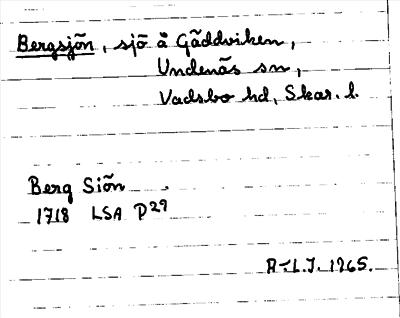 Bergsjön, sjö å Gäddviken,
Undenäs sn,
Vadsbo hd, Skar. l.
Berg Siön
1718 LSA P29
A-L.J. 1965.